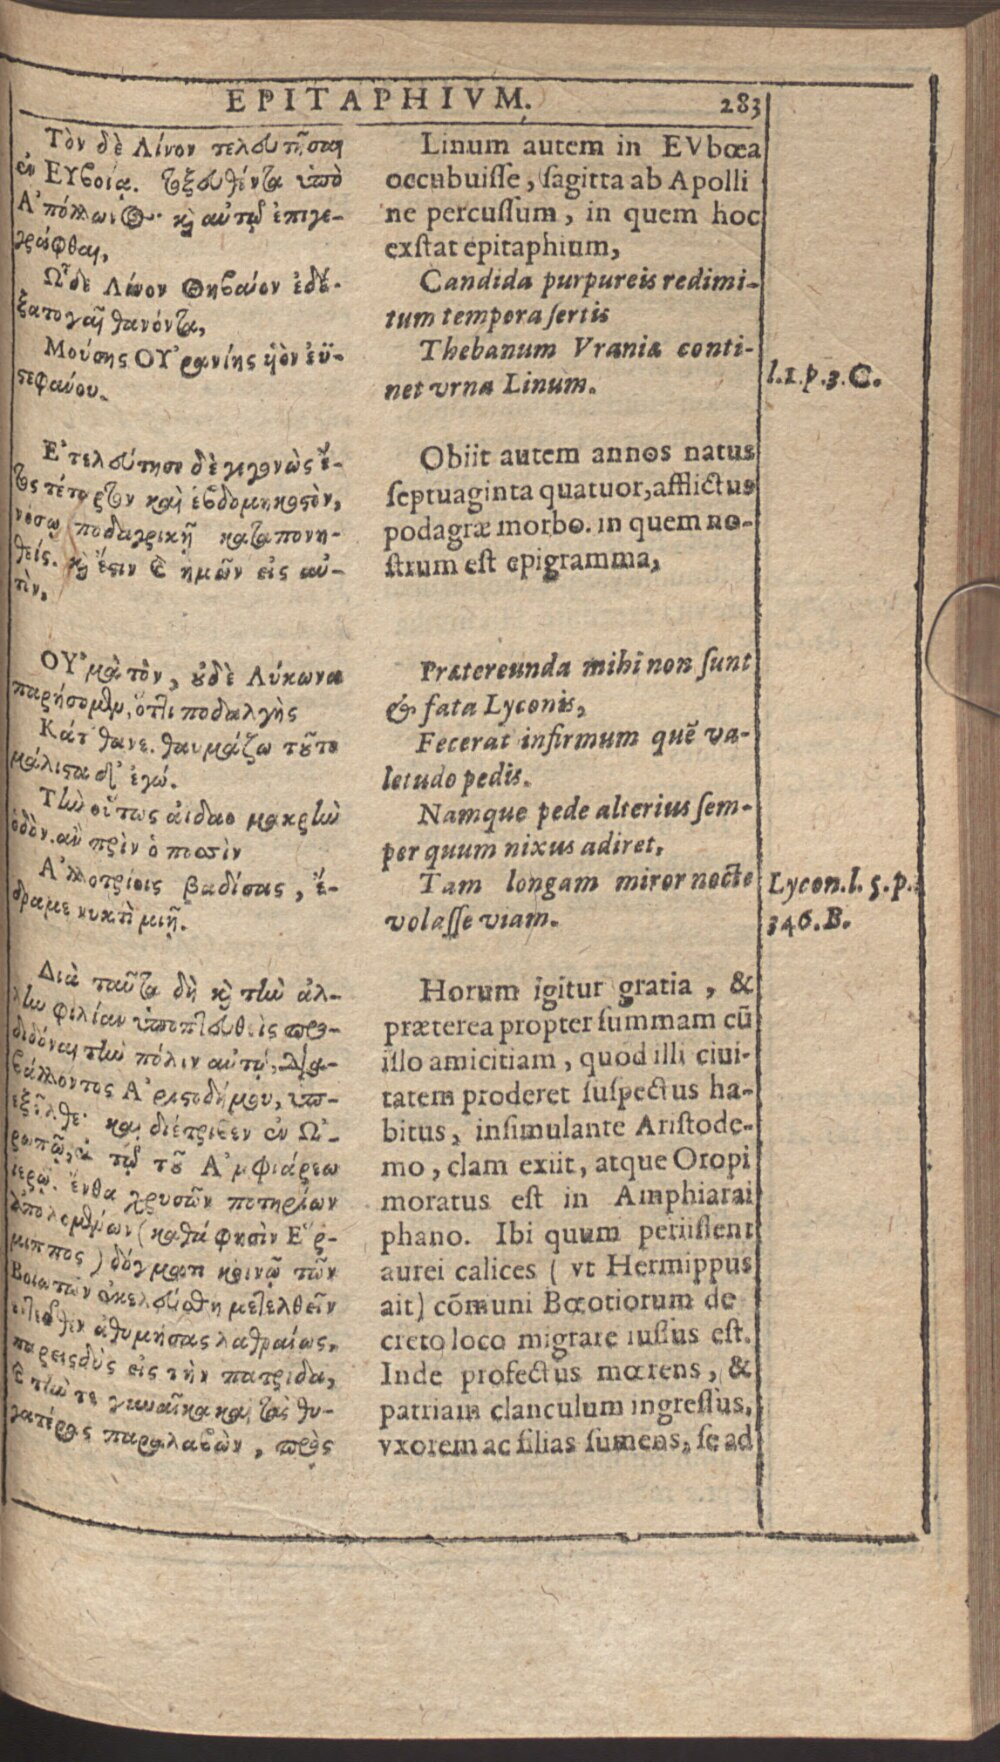 EPITAPHIVM. 283
Τὸν δὲ Λίνον τελευτῆσαι
ἐν ΕΥβοίᾳ. τοξευθέντα ὑπὸ
Α᾿πόλλωνος· καὶ αὐτῷ ἐπιγε-
γράφθαι,
Ω῟δε Λίνον Θηβαῖον ἐδέ-
ξατο γαῖ θανόντα,
Μούσης ΟΥ᾿ρανίης υἱὸν ἐϋ-
στεφάνου.
Ε᾿τελεύτησε δὲ γεγονὼς ἔ-
τος τέταρτον καὶ ἑβδομηκοστὸν,
νόσῳ ποδαγρικῇ καταπονη-
θείς. καὶ ἔστιν καὶ ἡμῶν εἰς αὐ-
τὸν,
ΟΥ᾿ μὰ τὸν, οὐδὲ Λύκωνα
παρήσομεν, ὅττι ποδαλγὴς
Κάτθανε. θαυμάζω τοῦτο
μάλιστα δ᾿ ἐγώ.
Τὴν οὕτως ἀίδαο μακρὴν
ὁδὸν. ἂν πρὶν ὁ ποσσὶν
Α᾿λλοτρίοις βαδίσας, ἔ-
δραμε νυκτὶ μιῇ.
Διὰ ταῦτα δὴ καὶ τὴν ἀλ-
λην φιλίαν ὑποπτευθεὶς προ-
διδόναι τὴν πόλιν αὐτῷ, δια-
βάλλοντος Α᾿ριστοδήμου, ὑπ-
εξῆλθε· καὶ διέτριβεν ἐν Ω᾿-
ρωπῷ, ἐν τῷ τοῦ Α᾿μφιάρεω
ἱερῷ. ἔνθα χρυσῶν ποτηρίων
ἀπολομένων (καθά φησὶν Ε῞ρ-
μιππος) δόγματι κοινῷ τῶν
Βοιωτῶν ἐκελεύσθη μετελθεῖν
ἐντεῦθεν ἀθυμήσας λαθραίως,
παρεισδὺς εἰς τὴν πατρίδα,
καὶ τήν τε γυναῖκα καὶ τὰς θυ-
γατέρας παραλαβὼν, πρὸς
Linum autem in EVbœa
occubuisse, sagitta ab Apolli
ne percussum, in quem hoc
exstat epitaphium,
Candida purpureis redimi-
tum tempora sertis
Thebanum Vrania conti-
net vrna Linum.
Obiit autem annos natus
septuaginta quatuor, afflictus
podagræ morbo. in quem no-
strum est epigramma,
Prætereunda mihi non sunt
& fata Lyconis,
Fecerat infirmum quẽ va-
letudo pedis.
Namque pede alterius sem-
per quum nixus adiret,
Tam longam miror nocte
volasse viam.
Horum igitur gratia, &
præterea propter summam cũ
illo amicitiam, quod illi ciui-
tatem proderet suspectus ha-
bitus, insimulante Aristode-
mo, clam exiit, atque Oropi
moratus est in Amphiarai
phano. Ibi quum periissent
aurei calices ( vt Hermippus
ait) cõmuni Bœotiorum de
creto loco migrare iussus est.
Inde profectus mœrens, &
patriam clanculum ingressus,
vxorem ac filias sumens, se ad
l.1.p.3.C.
Lycon.l.5.p.
346.B.